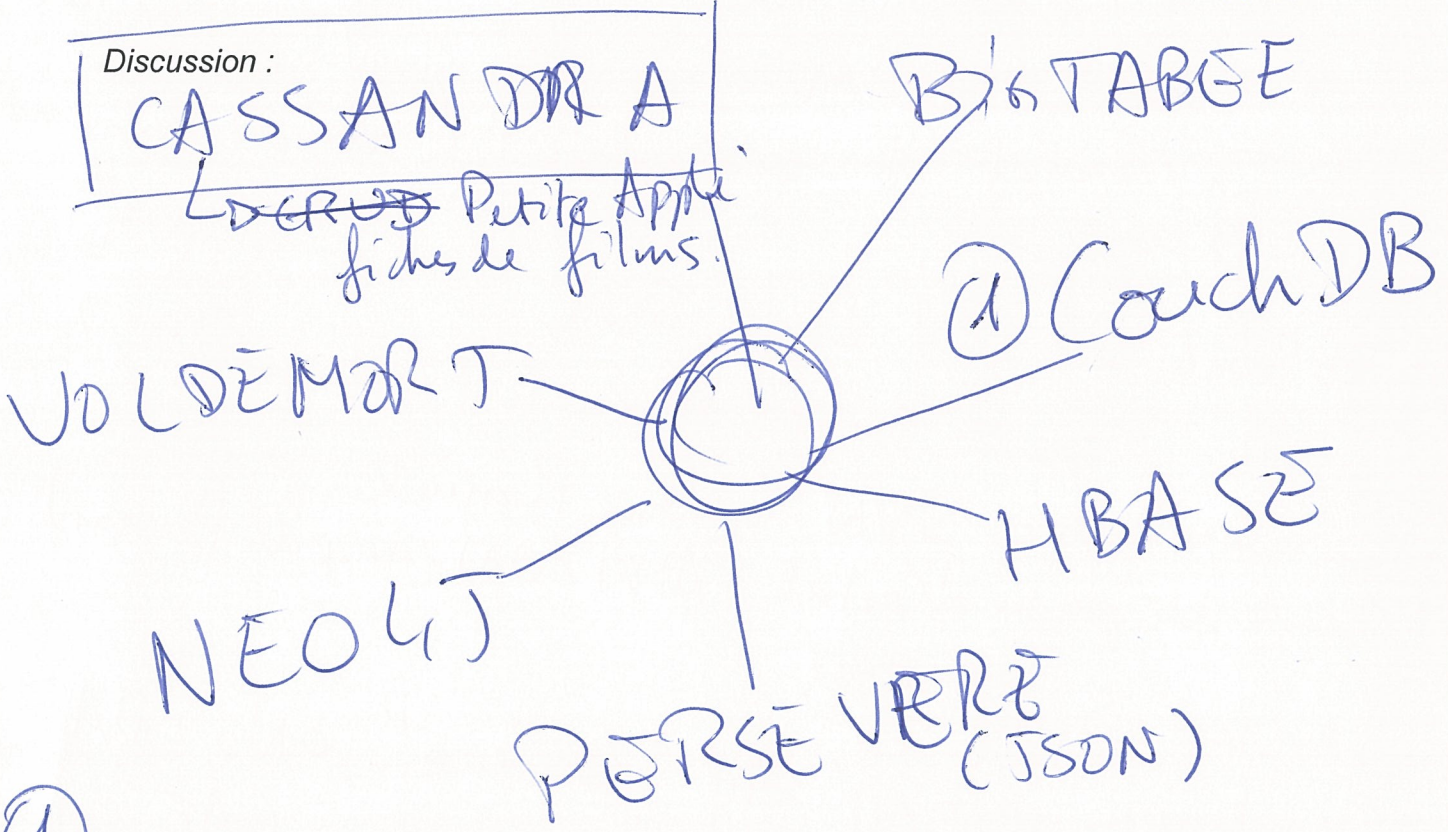 Discussion :
CASSANDRA
Petite Appli
fiches de films.
BigTABLE
① CouchDB
VOLDEMORT
HBASE
NEO4J
PERSEVERE
(JSON)
①